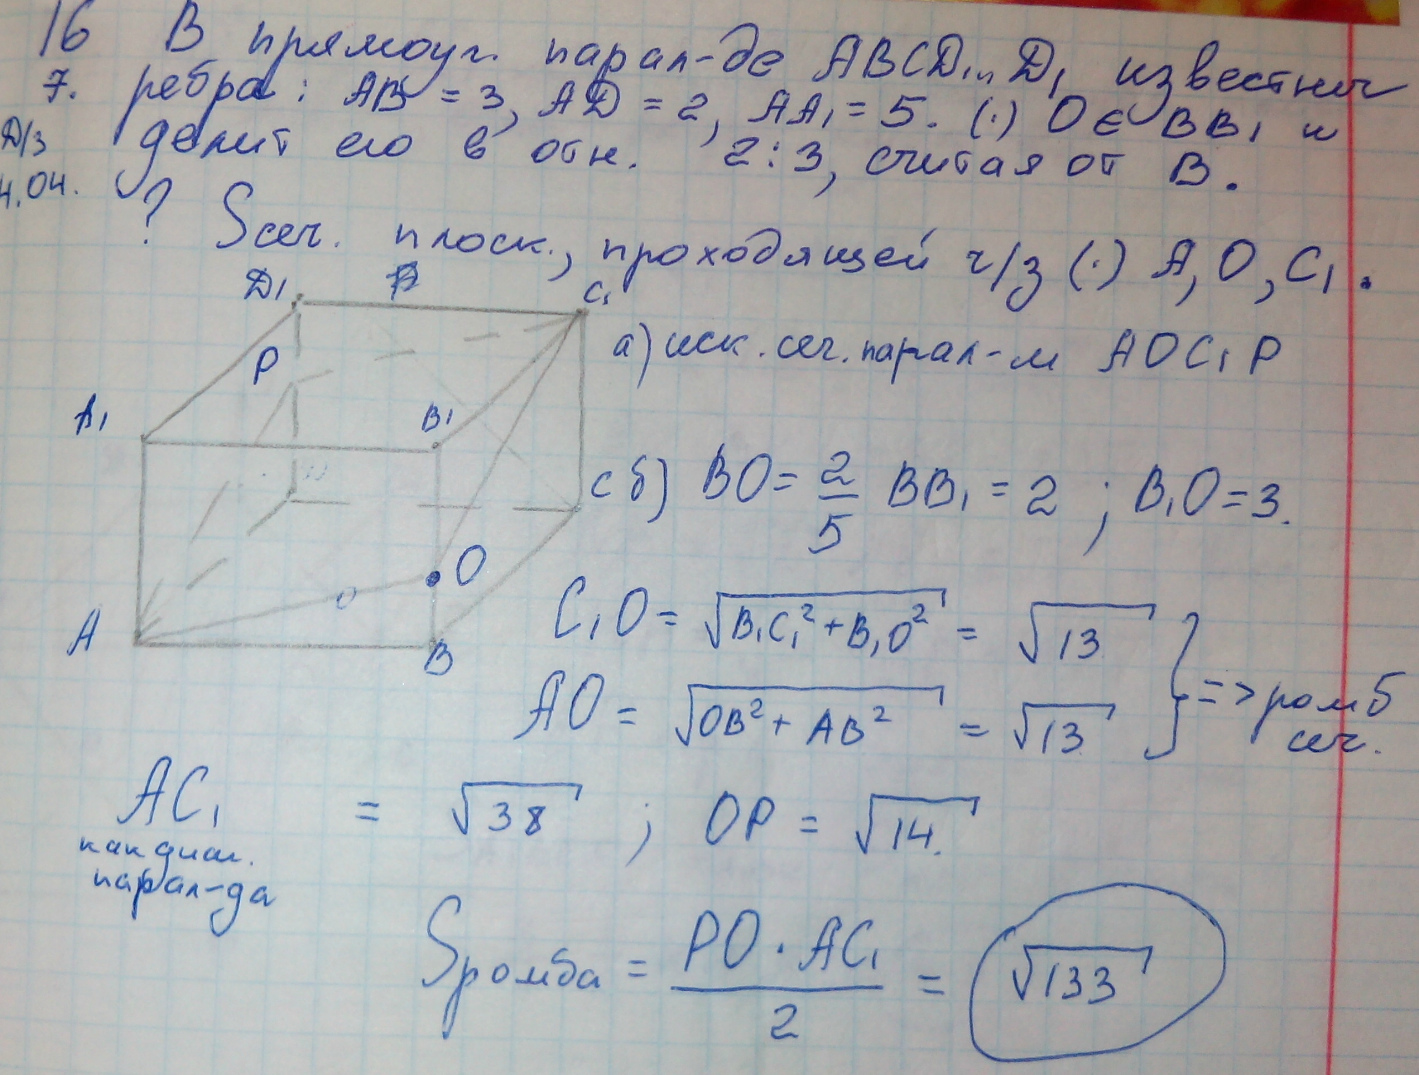 16 В прямоуг. парал-де ABCD...D₁ известны
7. ребра: AB = 3, AD = 2, AA₁ = 5. (·) O ∈ BB₁ и
Д/з делит его в отн. 2:3, считая от B.
4.04. ? Sсеч. плоск., проходящей ч/з (·) A, O, C₁.
D₁ C₁
а) иск. сеч. парал-м AOC₁P
P
A₁ B₁
C б) BO = 2/5 BB₁ = 2 ; B₁O = 3.
O
C₁O = √(B₁C₁² + B₁O²) = √13
A B
AO = √(OB² + AB²) = √13 } => ромб
сеч.
AC₁ = √38 ; OP = √14.
как диаг.
парал-да
Sромба = PO · AC₁ / 2 = √133